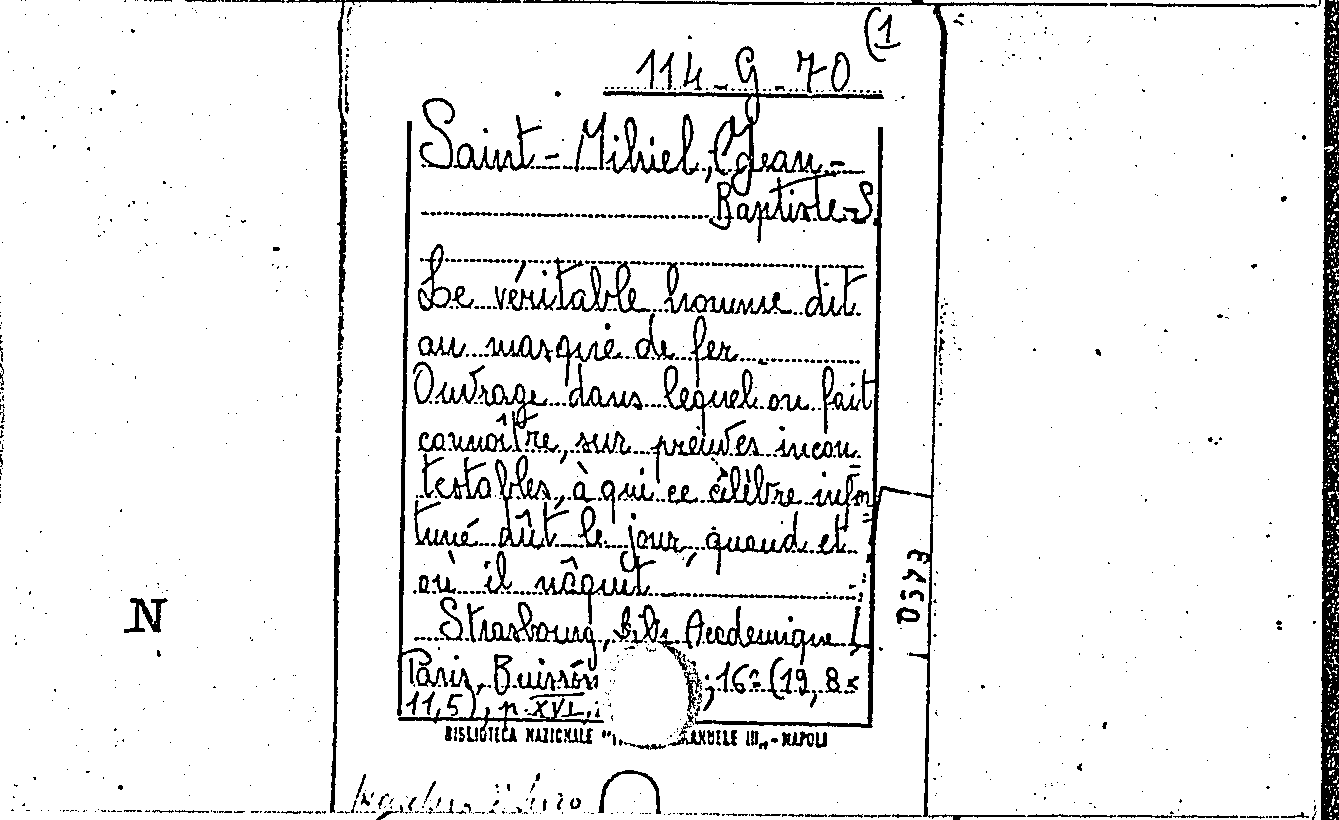 (1
114-G-70
Saint-Mihiel, (Jean-
Baptiste-S.
Le véritable homme dit
au masque de fer
Ouvrage dans lequel on fait
connoître, sur preuves incon=
testables, à qui ce célèbre infor=
tuné dût le jour, quand et
où il nâquit
Strasbourg, Libr. Academique
Paris, Buisson ; 16º (19,8x
11,5), p. XVI,
BIBLIOTECA NAZIONALE " III„ - NAPOLI
N